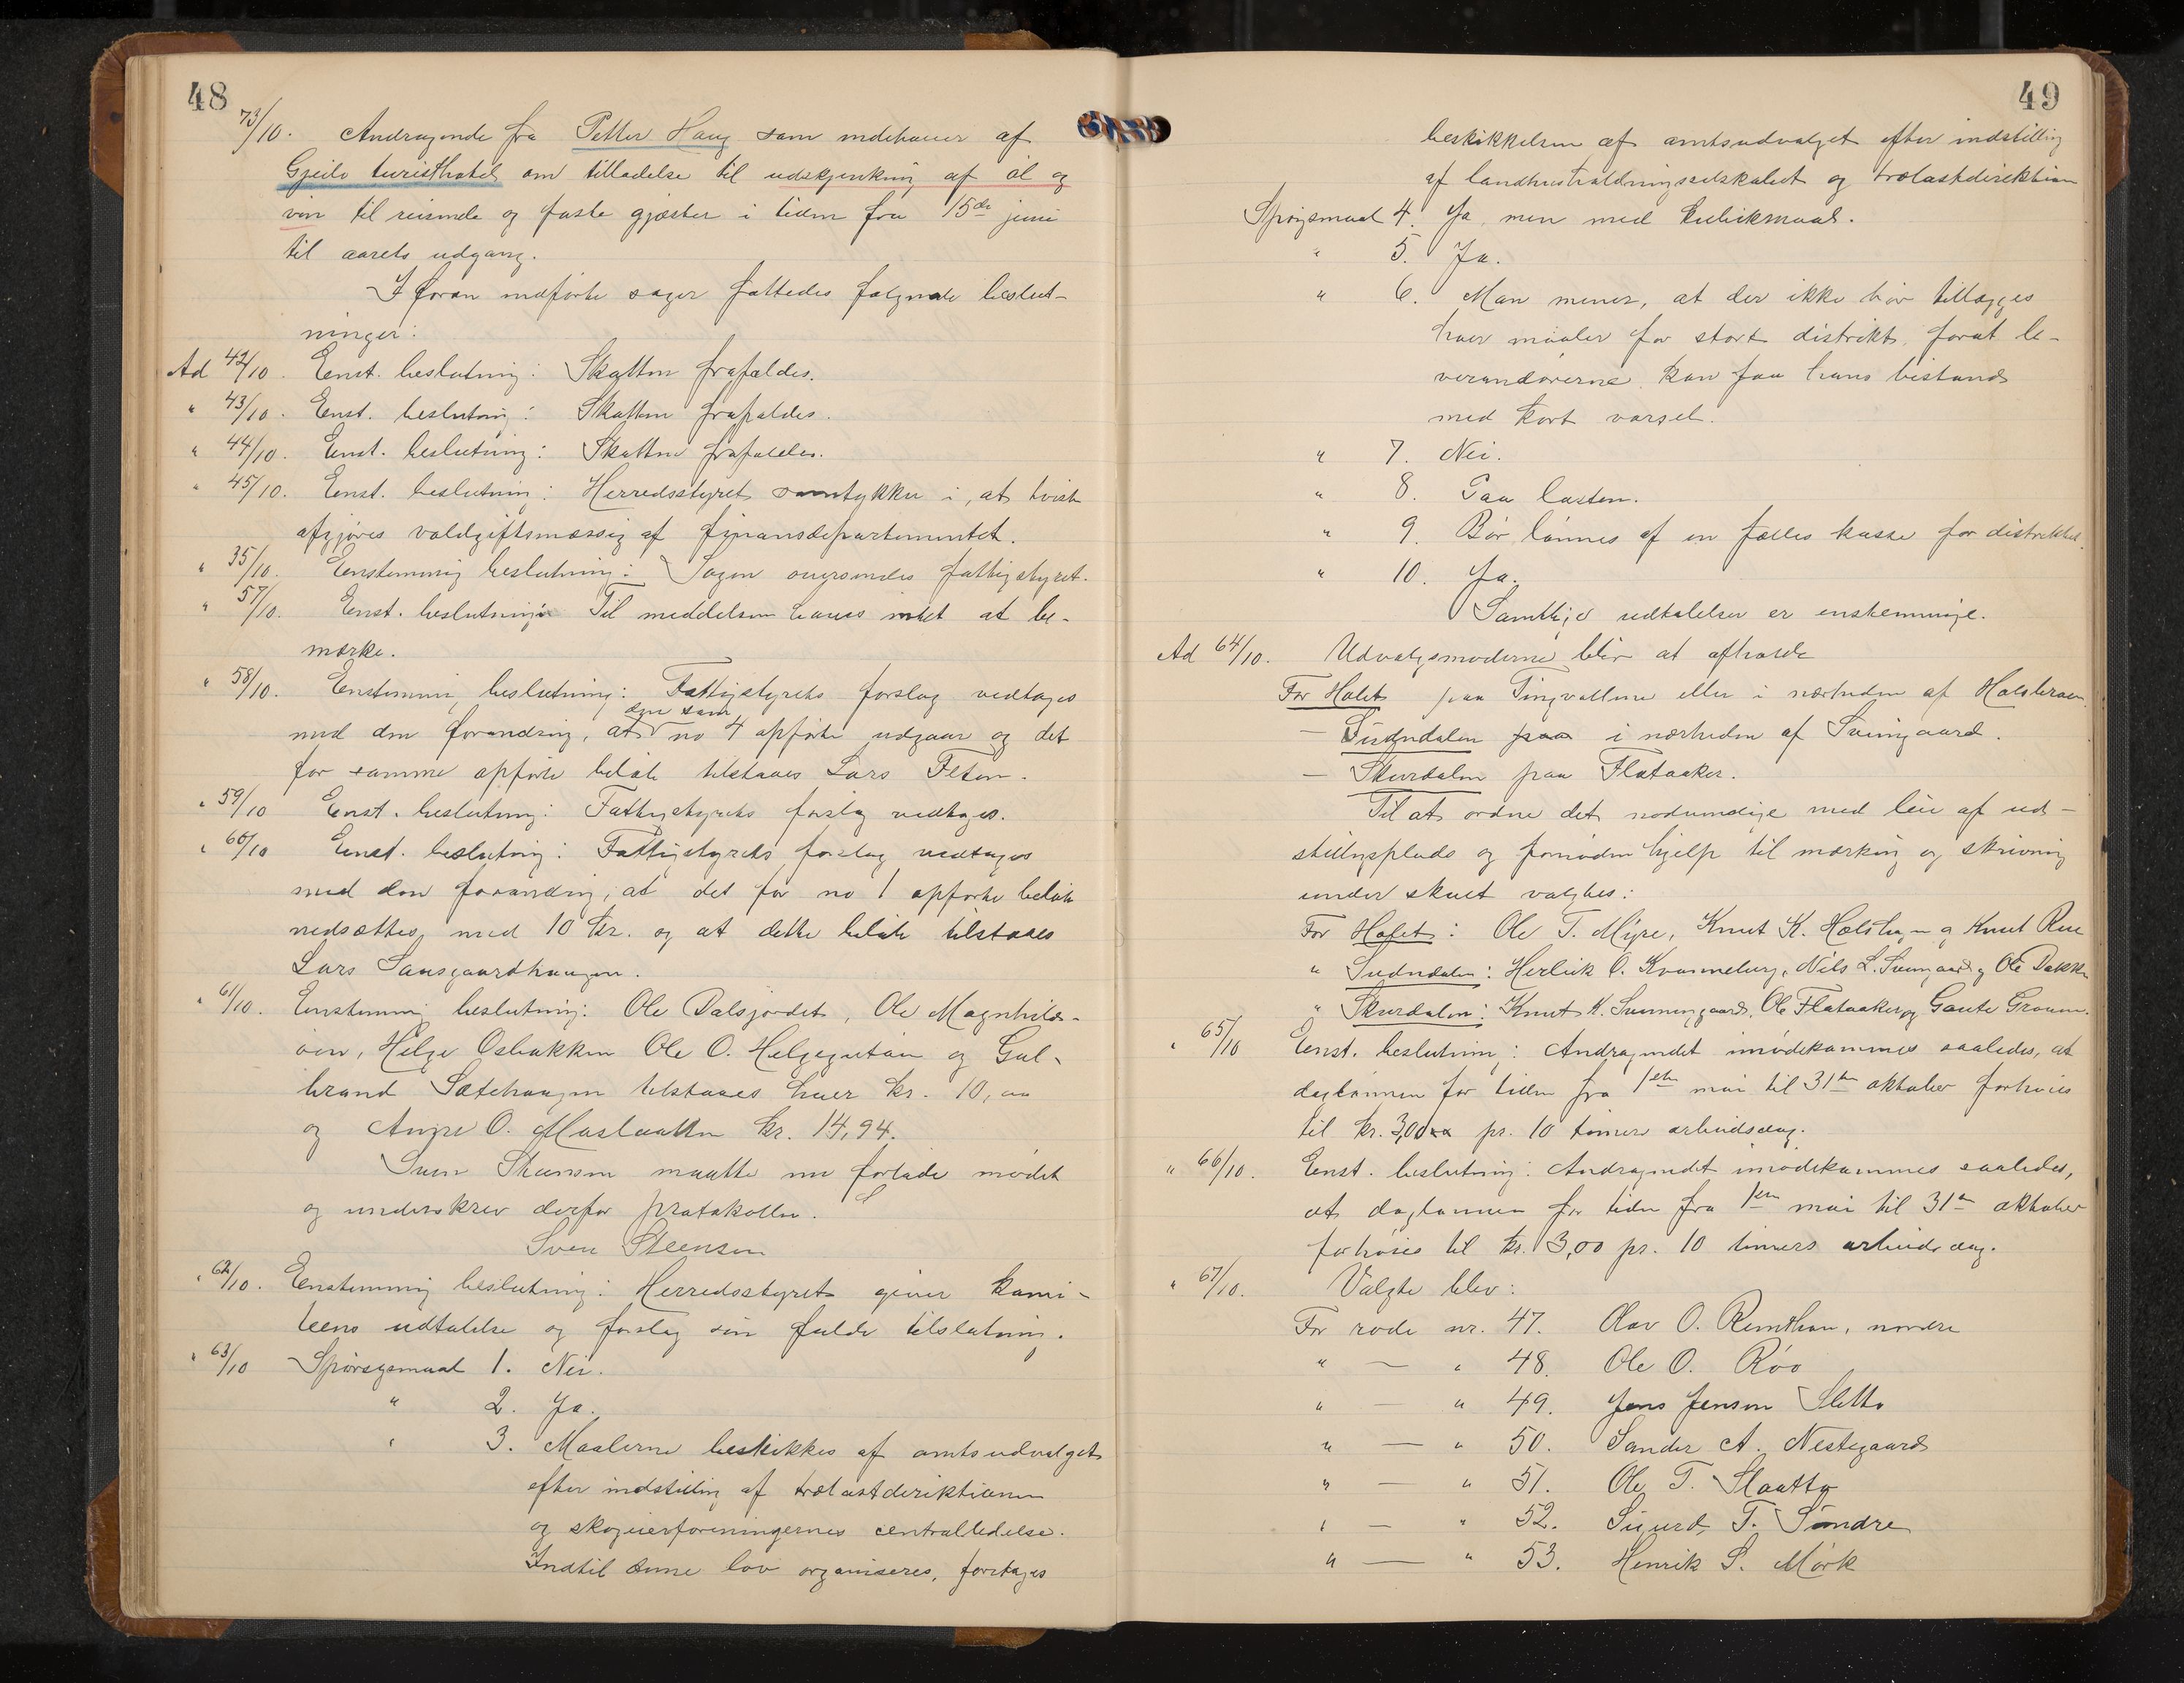 48
73/10. Andragende fra Petter Haug som indehaver af
Gjeilo turisthotel om tilladelse til udskjenkning af øl og
vin til reisende og faste gjæster i tiden fra 15de juni
til aarets udgang.
I foran indførte sager fattedes følgende beslut-
ninger:
Ad 42/10. Enst. beslutning: Skatten frafaldes.
" 43/10. Enst. beslutning: Skatten frafaldes.
" 44/10. Enst. beslutning: Skatten frafaldes.
" 45/10. Enst. beslutning: Herredsstyret samtykker i, at tvist
afgjøres voldgiftsmæssig af finansdepartementet.
" 35/10. Enstemmig beslutning: Sagen oversendes fattigstyret.
" 57/10. Enst. beslutning: Til meddelsen haves intet at be-
mærke.
" 58/10. Enstemmig beslutning: Fattigstyrets forslag vedtages
med den forandring, at den som no 4 opførte udgaar og det
for samme opførte beløb tilstaaes Lars Feten.
" 59/10 Enst. beslutning: Fattigstyrets forslag vedtages.
" 60/10 Enst. beslutning: Fattigstyrets forslag vedtages
med den forandring, at det for no 1 opførte beløb
nedsættes med 10 kr. og at dette beløb tilstaaes
Lars Sausgaardhaugen.
" 61/10. Enstemmig beslutning: Ole Dalsjordet, Ole Magnhilds-
øen, Helge Osbakken Ole O. Helgegutøen og Gul-
brand Sætehaugen tilstaaes hver kr. 10,00
og O. Maslaatten kr. 14,94.
Sven Steensen maatte nu forlade mødet
og underskrev derfor protokollen.
Sven Steensen
" 62/10. Enstemmig beslutning: Herredsstyret giver komi-
teens udtalelse og forslag sin fulde tilslutning.
" 63/10 Spørsgsmaal 1. Nei.
" 2. Ja.
" 3. Maalerne beskikkes af amtsudvalget
efter indstilling af trælastderiktionen
og skogeierforeningernes centralledelse.
Indtil denne lov organiseres, foretages
49
beskikkelsen af amtsudvalget efter indstilling
af landhusholdningsselskabet og trælastdirektion
Spørgsmaal 4. Ja men med kubikmaal.
" 5. Ja.
" 6. Man mener, at der ikke bør tillægges
hver maaler for stort distrikt, forat le-
verandørerne kan faa hans bistand
med kort varsel.
" 7. Nei.
" 8. Paa lasten.
" 9. Bør lønnes af en fælles kasse for distriktet.
" 10. Ja.
Samtlige udtalelser er enstemmige.
Ad 64/10. Udvalgsmøderne blir at afholde
For Holet paa Tingvollene eller i nærheden af
— Sudndalen paa i nærheden af Sveingaard.
— Skurdalen paa Flataaker.
Til at ordne det nødvendige med leie af ud-
stillingsplads og fornøden hjelp til mærking og skrivning
under skuet valgtes:
For Holet: Ole T. Myre, Knut K. Holshagen og Knut Rue
" Sudndalen: Herbik O. Kvanneberg, Nils L. Sveingaard og Ole Dokken
" Skurdalen: Knut K. Sveinungaard, Ole Flataaker og Gaute
" 65/10 Enst. beslutning: Andragendet imødekommes saaledes, at
daglønnen for tiden fra 1ste mai til 31te oktober forhøies
til kr. 3,00 pr. 10 timers arbeidsdag.
" 66/10. Enst. beslutning: Andragendet imødekommes saaledes,
at daglønnen for tiden fra 1ste mai til 31te oktober
forhøies til kr. 3,00 pr. 10 timers arbeidsdag.
" 67/10. Valgte blev:
For rode nr. 47. Olav O. nordre
" — " 48. Ole O. Røo
" — " 49. Jens Jensen Sletto
" — " 50. Sander A. Nestegaard
" — " 51. Ole T. Slaatto
" — " 52. Sigurd T. Søndre
" — " 53. Henrik S. Mørk